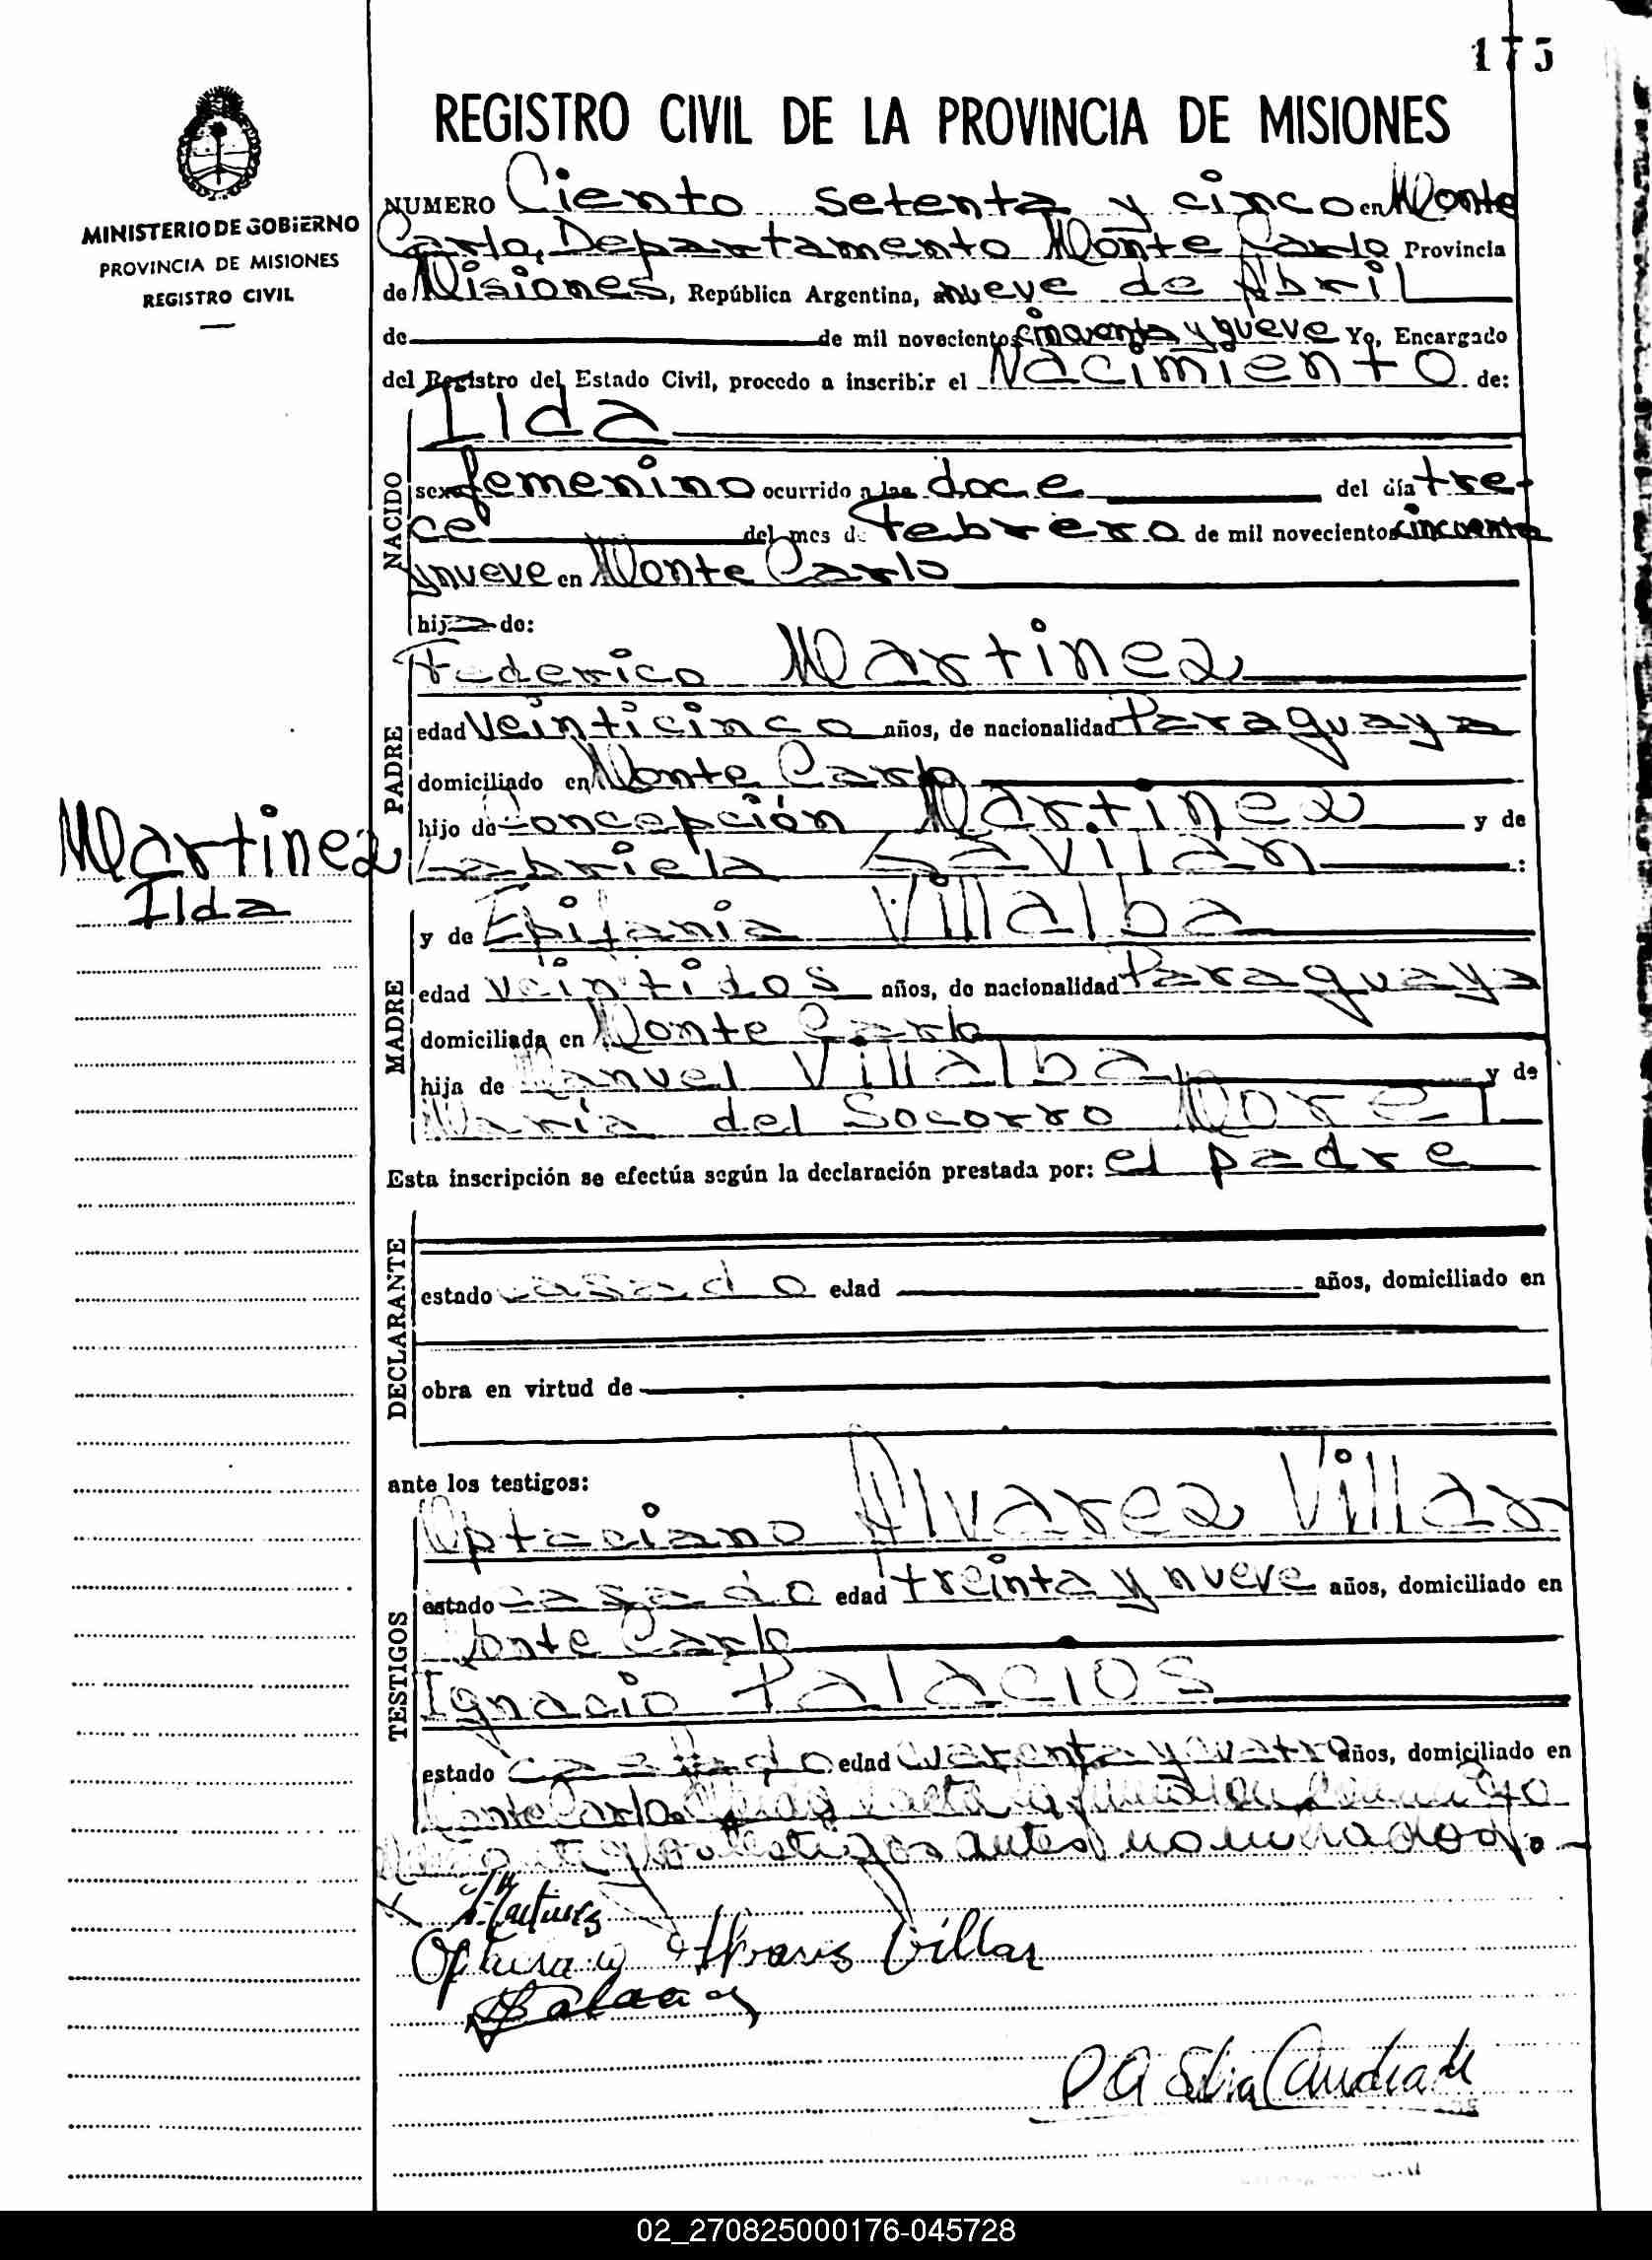 175
REGISTRO CIVIL DE LA PROVINCIA DE MISIONES
MINISTERIO DE GOBIERNO
PROVINCIA DE MISIONES
REGISTRO CIVIL
NUMERO Ciento setenta y cinco en Monte
Carlo, Departamento Monte Carlo Provincia
de Misiones, República Argentina, a nueve de Abril
de de mil novecientos cincuenta y nueve Yo, Encargado
del Registro del Estado Civil, procedo a inscribir el Nacimiento de:
NACIDO
Ilda
sexo femenino ocurrido a las doce del día tre-
ce del mes de Febrero de mil novecientos cincuenta
y nueve en Monte Carlo
hija de:
PADRE
Federico Martinez
edad veinticinco años, de nacionalidad Paraguaya
domiciliado en Monte Carlo
hijo de Concepción Martinez y de
Gabriela Gavilan :
Martinez
Ilda
MADRE
y de Epifania Villalba
edad veintidos años, de nacionalidad Paraguaya
domiciliada en Monte Carlo
hija de Manuel Villalba y de
Maria del Socorro Morel
Esta inscripción se efectúa según la declaración prestada por: el padre
DECLARANTE
estado casado edad años, domiciliado en
obra en virtud de
ante los testigos:
TESTIGOS
Optaciano Alvarez Villar
estado casado edad treinta y nueve años, domiciliado en
Monte Carlo
Ignacio Palacios
estado casado edad cuarenta y cuatro años, domiciliado en
Monte Carlo. acta la firman
y los testigos antes nominados.-
Martinez
Alvarez Villar
Palacios
02_270825000176-045728